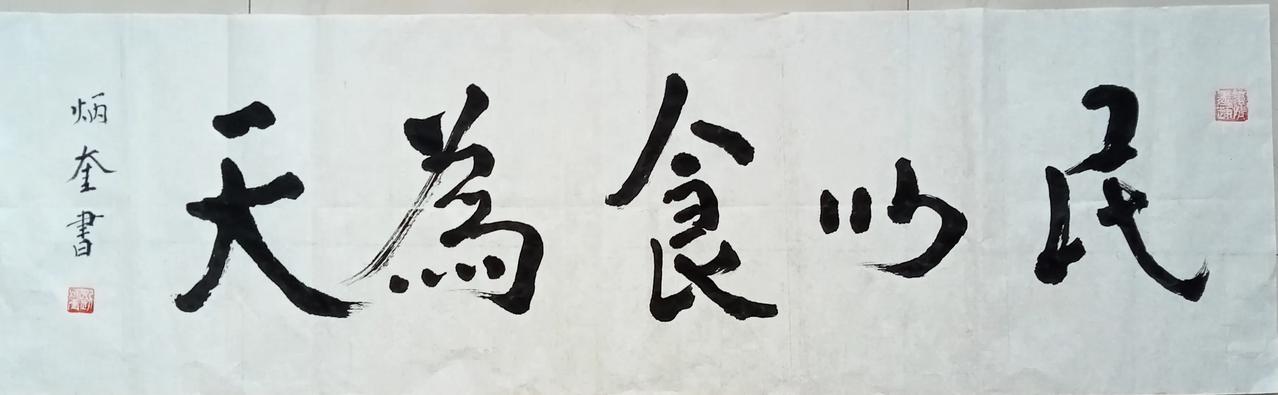 民以食為天
炳奎書